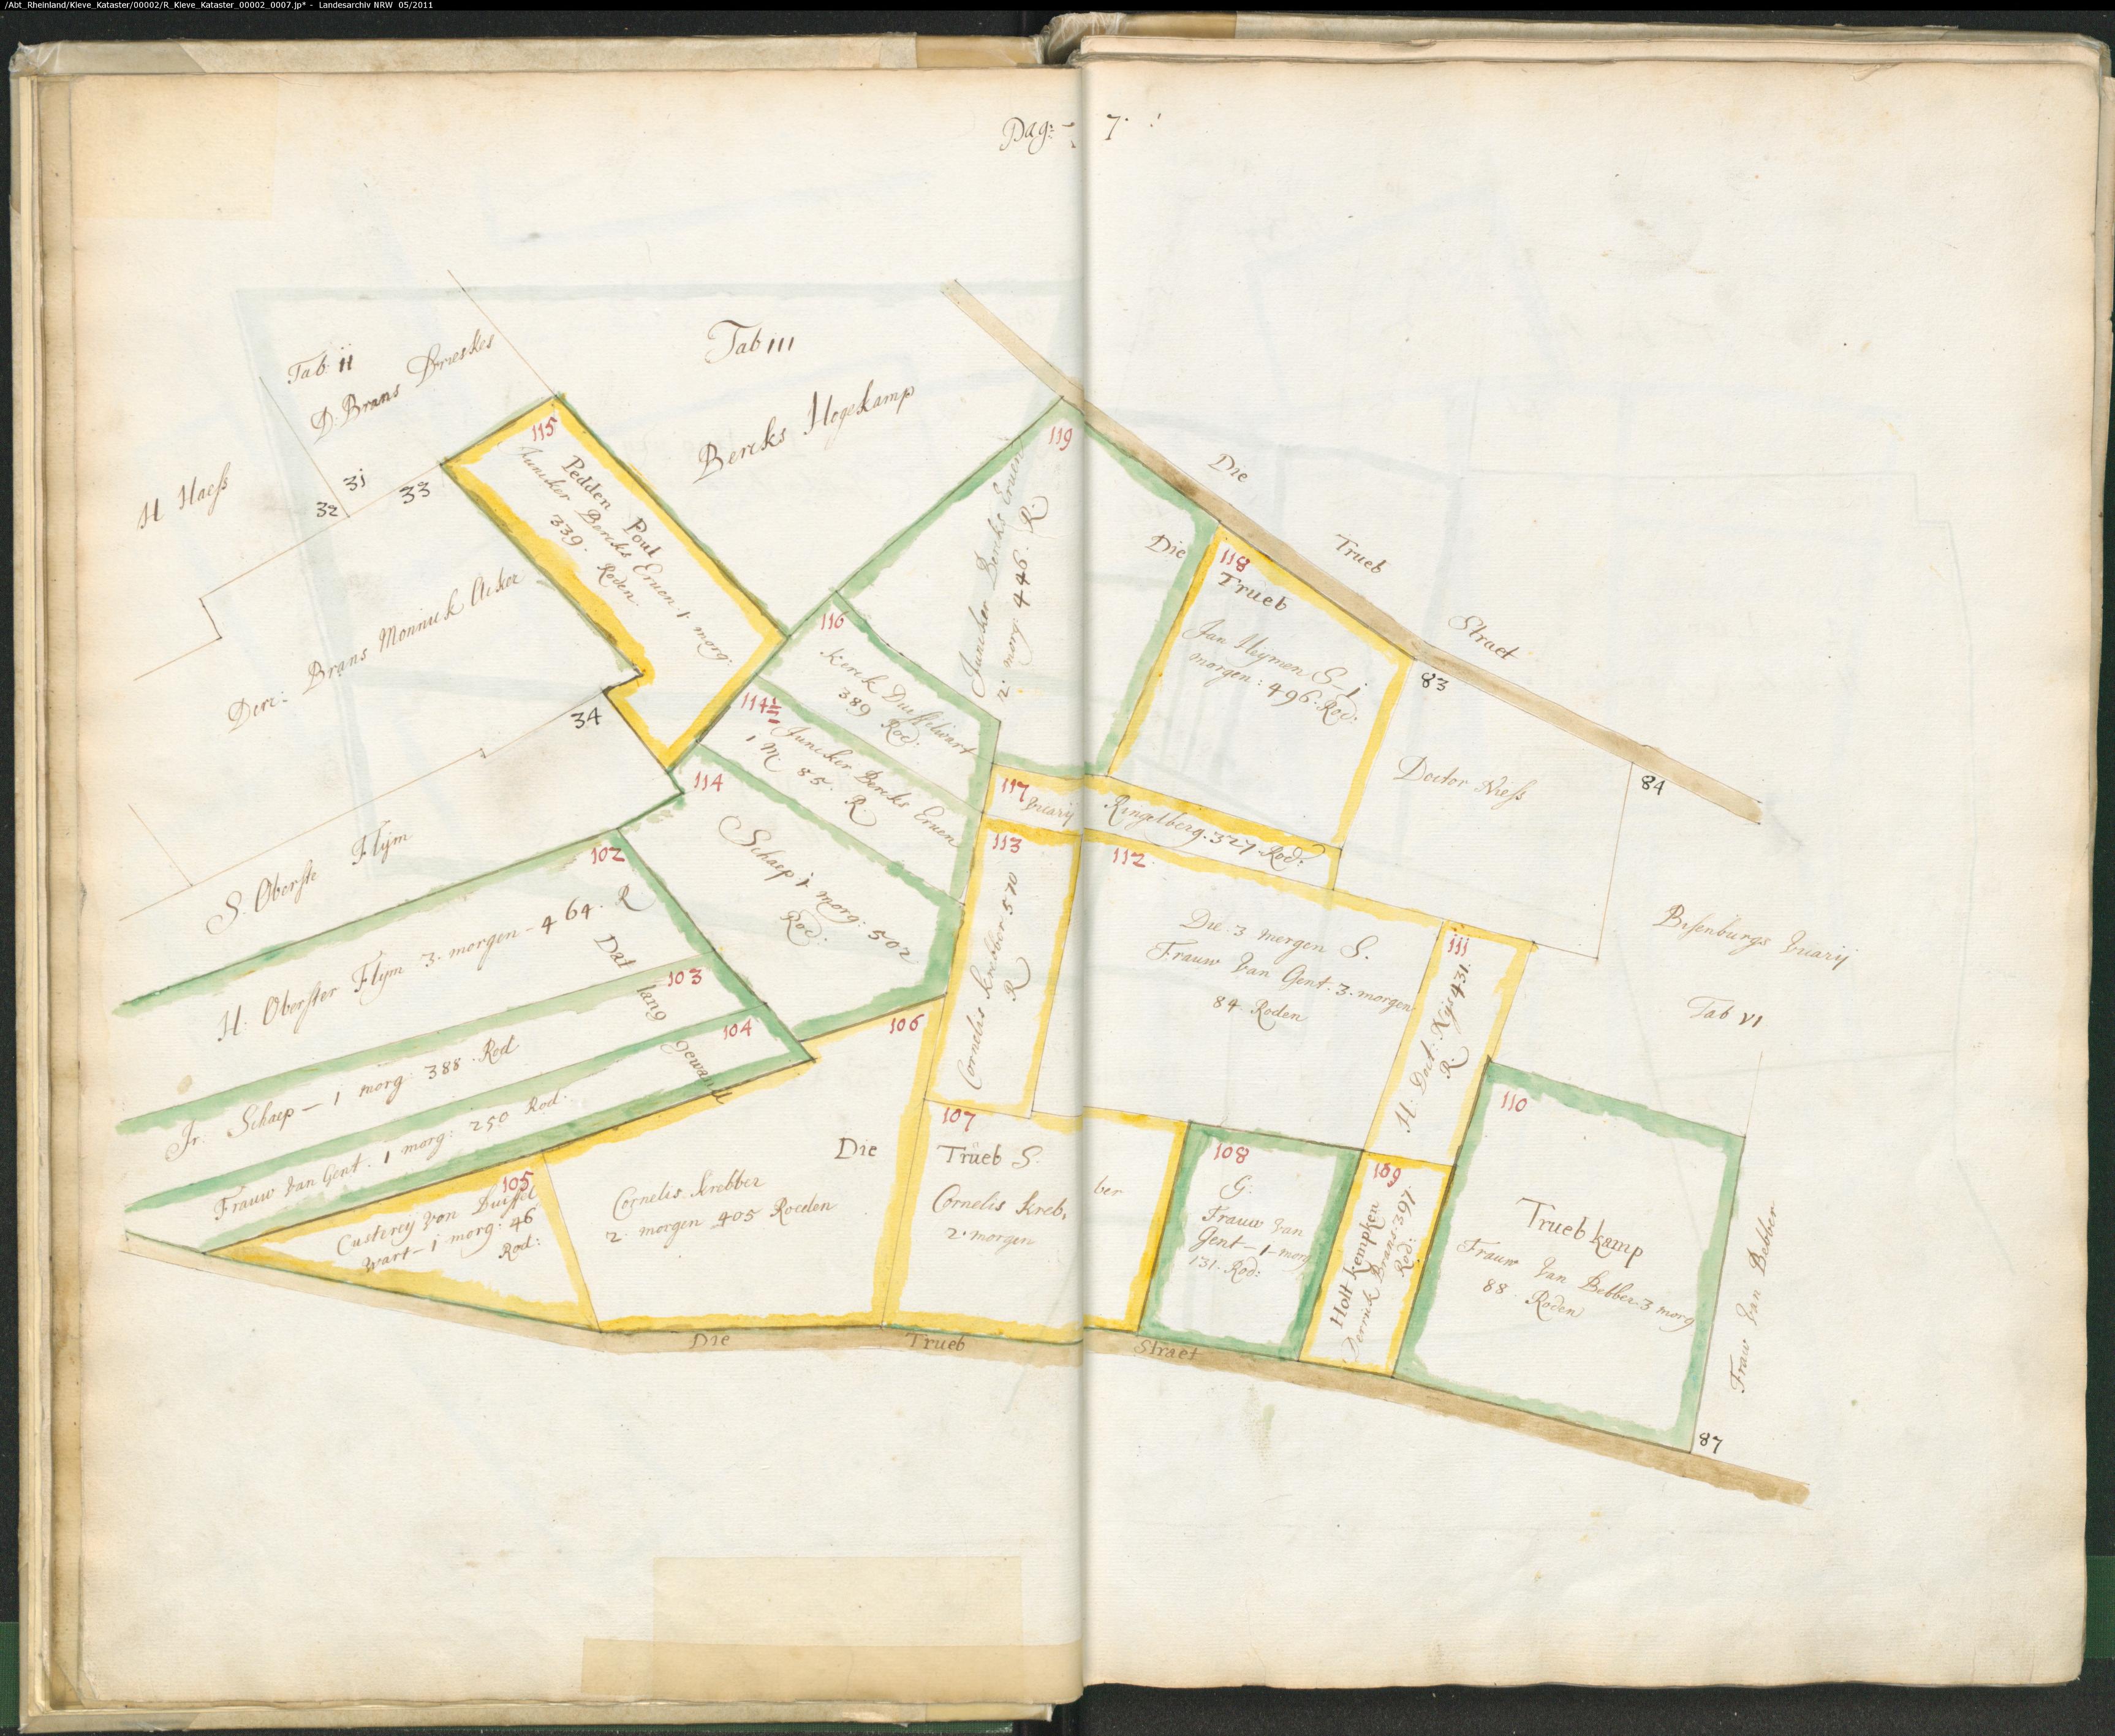 /Abt_Rheinland/Kleve_Kataster/00002/R_Kleve_Kataster_00002_0007.jp* - Landesarchiv NRW 05/2011
Pag: 7.
Tab ii
D. Brans
H Haess
31
32
33
Tab III
Bercks Hogekamp
115
Pedden Poul
Juncker Bercks Eruen 1 morg:
339.
Roden.
Derc: Brans Monnick Acker
34
S. Oberste Flÿm
119
Juncker Bercks Eruen
2. morg. 446. R.
116
Kerck Duisselwart
389 Rod:
114½
Juncker Bercks Eruen
1 M 85. R.
114
Schaep 1 morg: 502
Rod:
102
H. Oberster Flÿm 3. morgen - 464. R
Dat
lang
gewandt
103
Jr. Schaep - 1 morg: 388. Rod
104
Frauw Van Gent. 1 morg: 250 Rod.
105
Custerey von Duissel
wart - 1 morg: 46
Rod:
106
Die
Cornelis Krebber
2. morgen 405 Roeden
107
Trüeb S.
Cornelis Kreb, ber
2. morgen
Die Trueb Straet
118
Die Trueb
Jan Heymen S - 1
morgen: 496. Rod:
Die Trueb Straet
83
Doctor Niess
84
117
Vicarij Ringelberg. 327 Rod:
113
Cornelis Krebber 570
R
112
Die 3 mergen S.
Frauw Van Gent. 3. morgen
84 Roden
111
H. Doct: Nijs 431.
R.
Bisenburgs Vicarij
Tab VI
110
Trueb kamp
Frauw Van Bebber 3 morg
88 Roden
108
G.
Frauw Van
Gent - 1 - morg
131. Rod:
109
Holt kempken
Derrick Brans. 397.
Rod:
Frauw Van Bebber
87